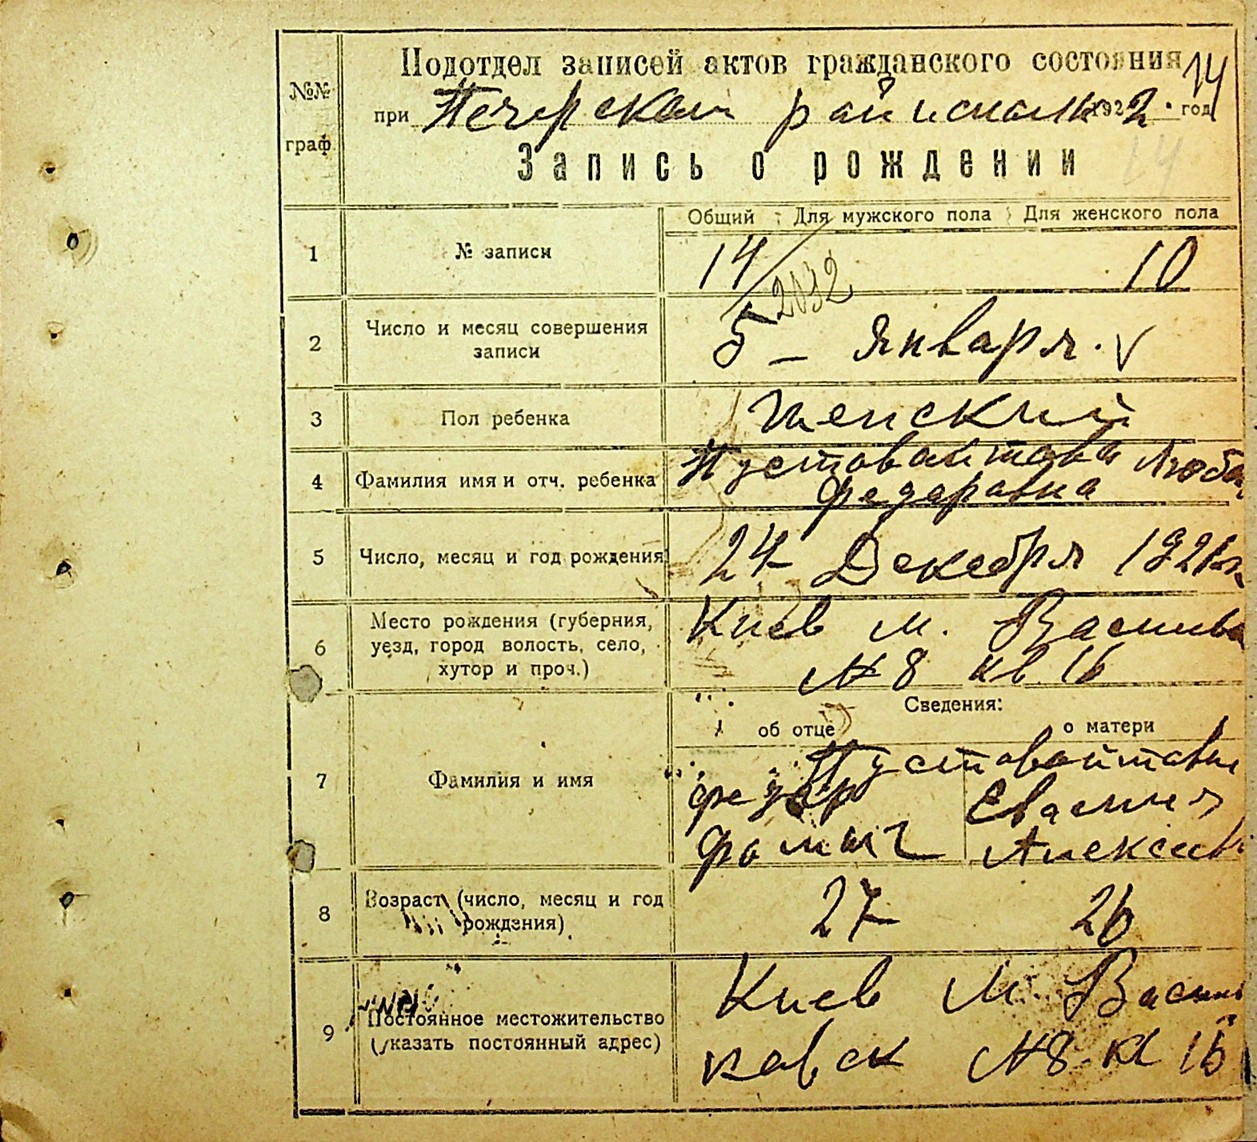 Подотдел записей актов гражданского состояния 14
при Печерском райисполк 1922. год
Запись о рождении
№№ граф.
Общий Для мужского пола Для женского пола
1 № записи 14 10
2032
2 Число и месяц совершения
записи 5 – Января. V
3 Пол ребенка Женский
4 Фамилия имя и отч. ребенка Пустовайтова Люба
Федаравна
5 Число, месяц и год рождения 24 Декебря 1921 г.
6 Место рождения (губерния,
уезд, город волость, село,
хутор и проч.)
Киев м. Васильк
№ 8 кв 16
Сведения:
об отце о матери
7 Фамилия и имя
Пустовойтовы
федор
фомич Алексеев
8 Возраст (число, месяц и год
рождения) 27 26
9 Постоянное местожительство
(указать постоянный адрес)
Киев М. Василь
ковск №8 к 16